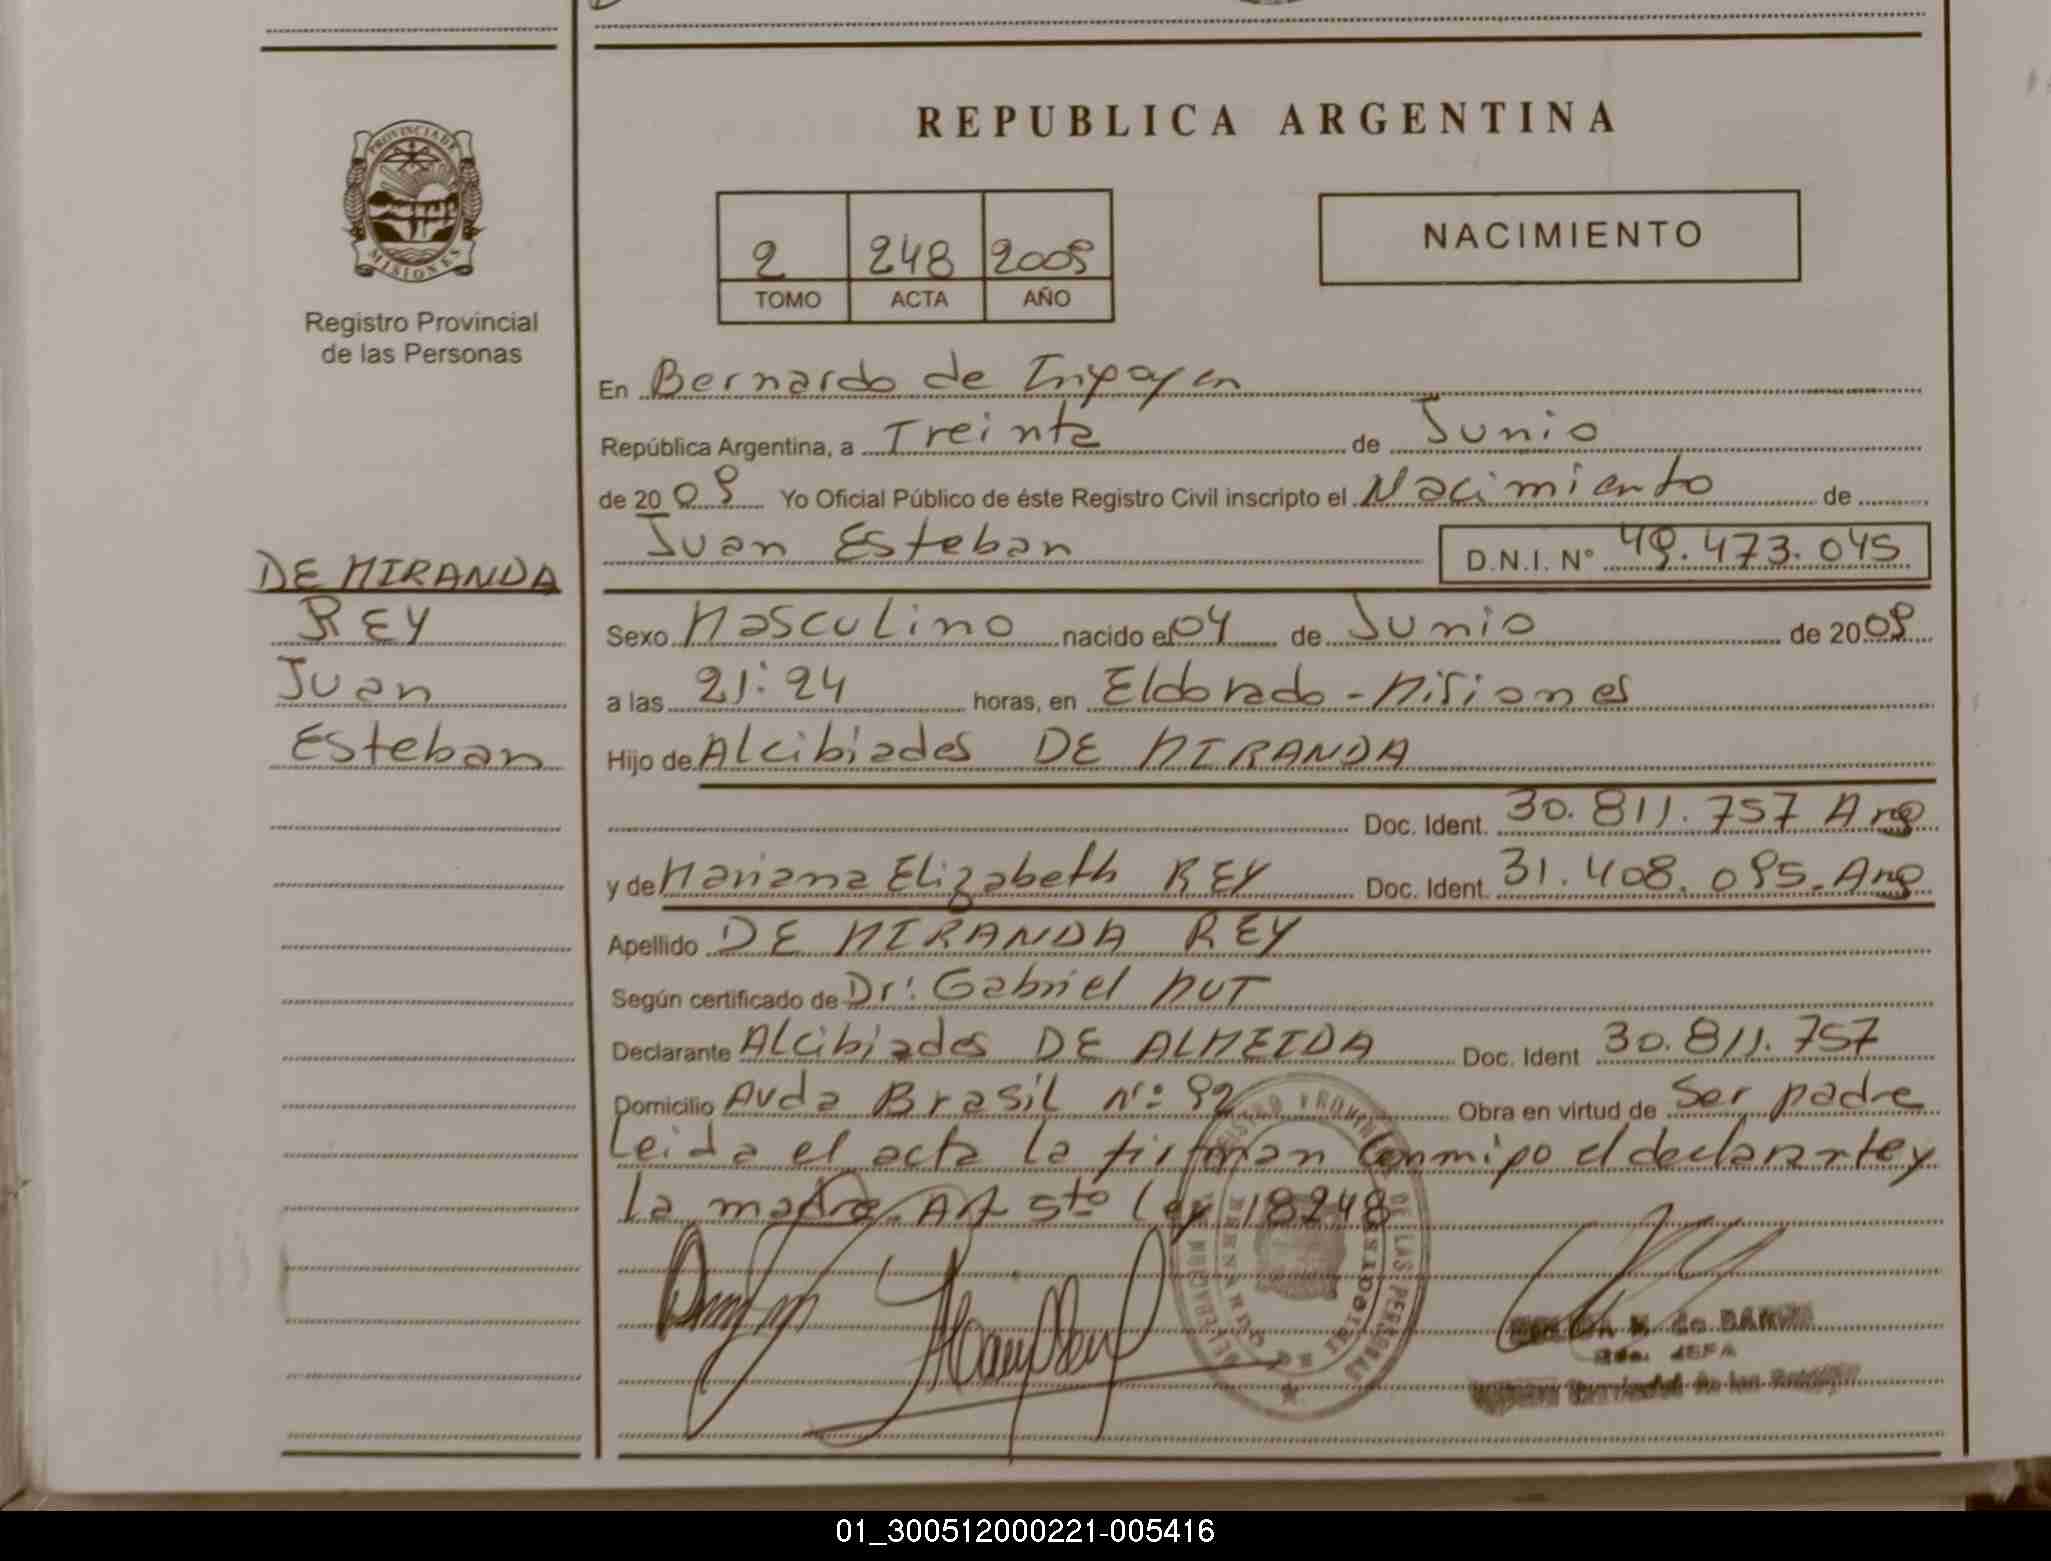 PROVINCIA DE
MISIONES
Registro Provincial
de las Personas
DE MIRANDA
REY
Juan
Esteban
REPUBLICA ARGENTINA
2 248 2009
TOMO ACTA AÑO
NACIMIENTO
En Bernardo de Irigoyen
República Argentina, a Treinta de Junio
de 2009 Yo Oficial Público de éste Registro Civil inscripto el Nacimiento de
Juan Esteban D.N.I. N° 49.473.045
Sexo Masculino nacido el 04 de Junio de 2009
a las 21:24 horas, en Eldorado - Misiones
Hijo de Alcibiades DE MIRANDA
Doc. Ident. 30.811.757 Arg
y de Mariana Elizabeth REY Doc. Ident. 31.408.095. Arg
Apellido DE MIRANDA REY
Según certificado de Dr: Gabriel MUT
Declarante Alcibiades DE ALMEIDA Doc. Ident 30.811.757
Domicilio Avda Brasil N°: 92 Obra en virtud de Ser padre
Leida el acta la firman conmigo el declarante y
la madre. Art 5to Ley 18248
DE LAS PERSONAS
BERNARDO DE
de
JEFA
01_300512000221-005416